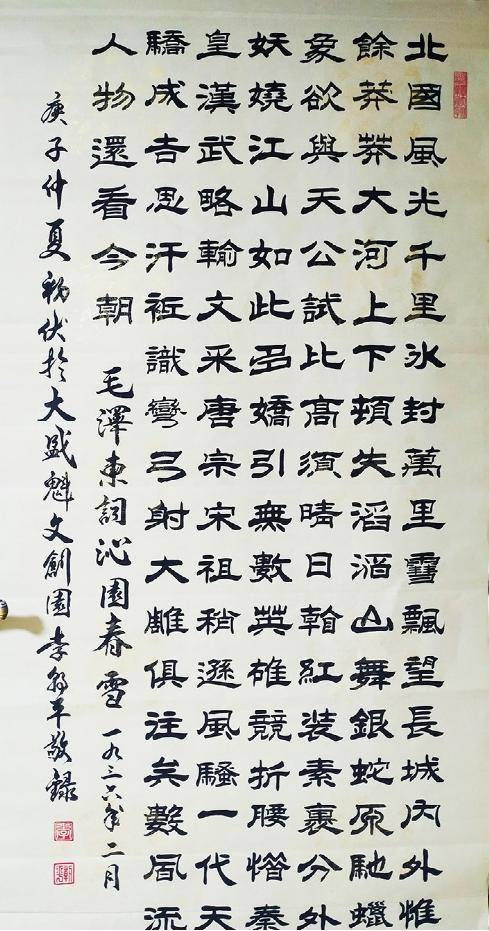 北國風光千里冰封萬里雪飄望長城內外惟
餘莽莽大河上下頓失滔滔山舞銀蛇原馳蠟
象欲與天公試比高須晴日看紅装素裹分外
妖嬈江山如此多嬌引無數英雄競折腰惜秦
皇漢武略輸文采唐宗宋祖稍遜風騷一代天
驕成吉思汗祗識彎弓射大雕俱往矣數風流
人物還看今朝 毛澤東詞沁園春雪 一九三六年二月
庚子仲夏初伏於大盛魁文創園李平敬錄